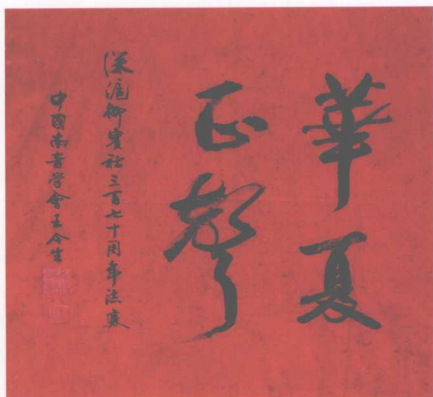 華夏
正聲
深滬御賓社三百七十周年誌慶
中國南音學會王今生